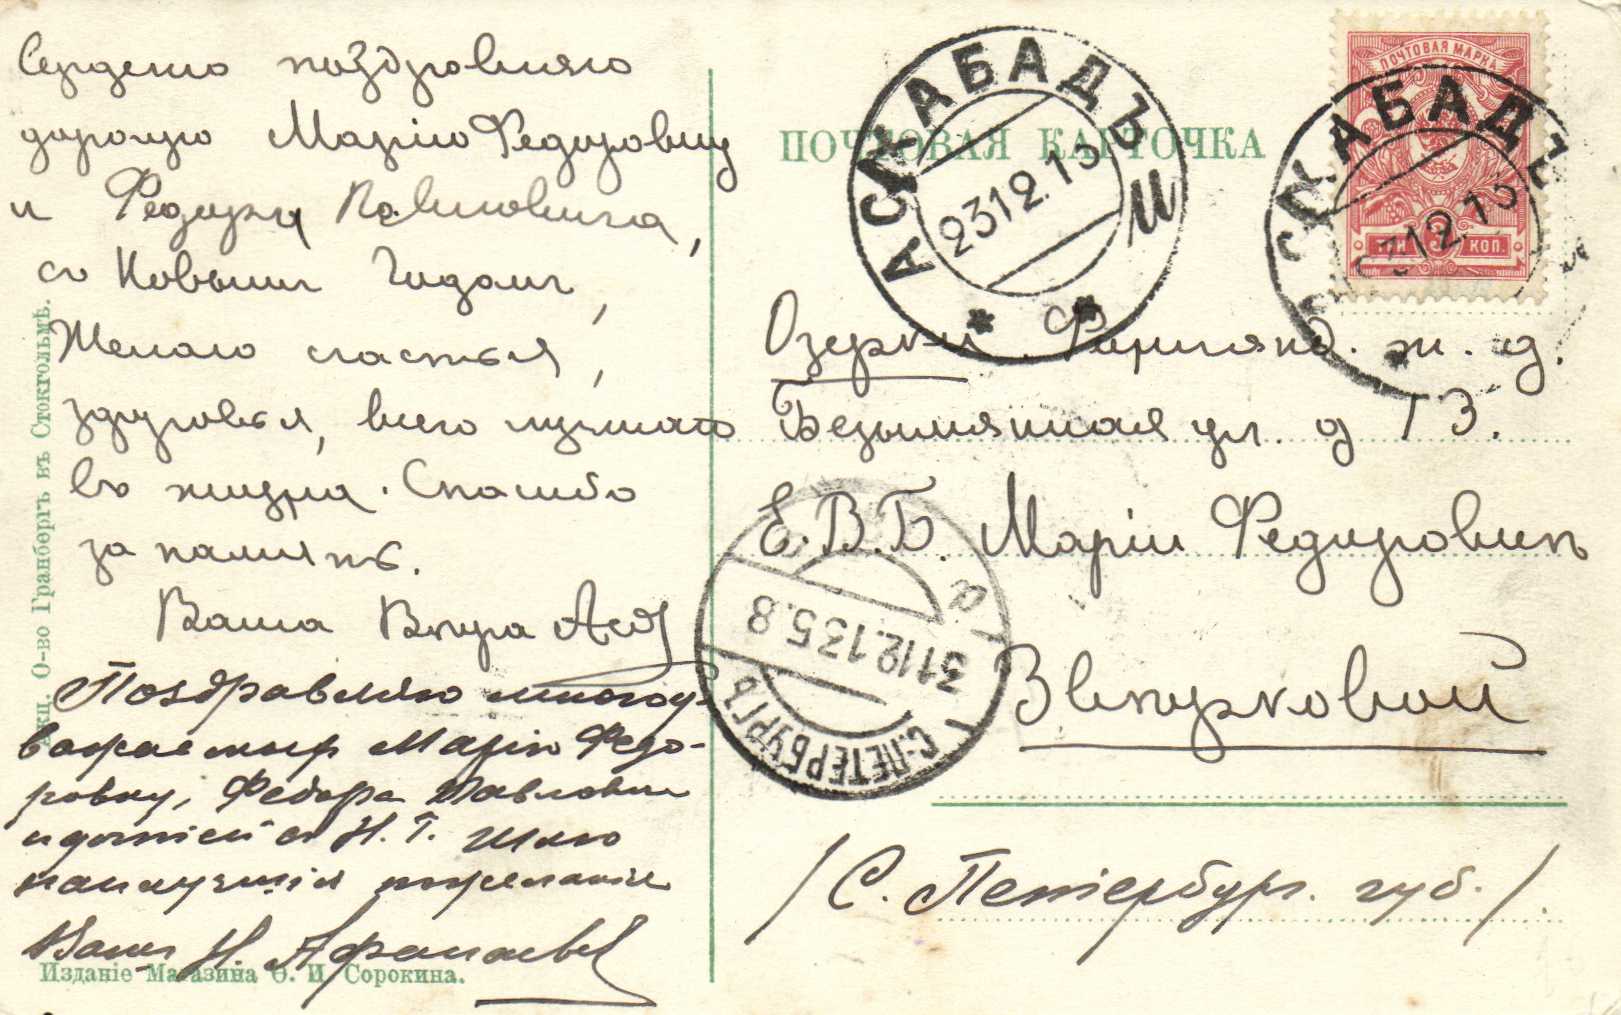 Сердечно поздравляю
дорогую Марію Федоровну
и Федора Павловича,
съ Новымъ Годомъ,
Желаю счастья,
здоровья, всего лучшаго
въ жизни. Спасибо
за память.
Ваша Вѣра
Поздравляю многоу-
важаемыхъ Марію Федо-
ровну, Федора Павлови
и дѣтей съ Н. Г. Шлю
наилучшія пожеланія
Вашъ Н. Афанасьев
Акц. О-во Гранбергъ въ Стокгольмѣ.
Изданіе Магазина Ѳ. И. Сорокина.
ПОЧТОВАЯ КАРТОЧКА
АСХАБАДЪ
23 12. 13
И
ПОЧТОВАЯ МАРКА
ТРИ 3 КОП.
АСХАБАДЪ
23 12. 13
Озерки Финлянд. ж. д.
Безымянная ул. д 13.
Е.В.Б. Маріи Федоровнѣ
Звѣрковой
С.ПЕТЕРБУРГЪ
31 12. 13 5. 8
/С. Петербург. губ./